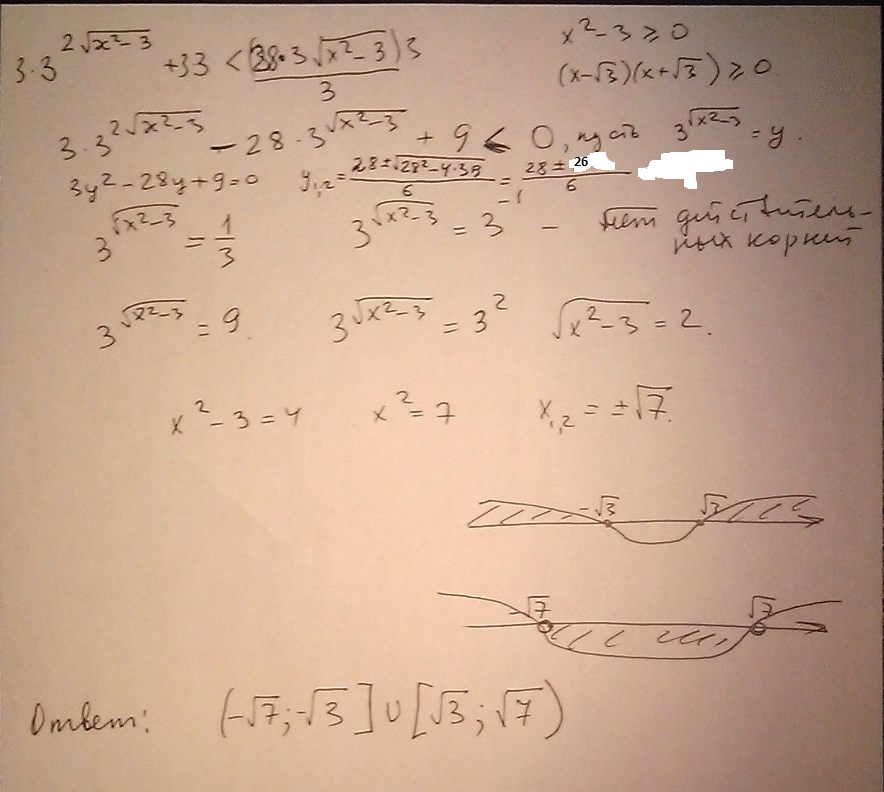 3·3^{2√(x²-3)} +33 < (28·3√(x²-3))3 / 3 x²-3 ≥ 0
(x-√3)(x+√3) ≥ 0.
3·3^{2√(x²-3)} - 28·3^{√(x²-3)} + 9 < 0, пусть 3^{√(x²-3)} = y.
3y²-28y+9=0 y₁,₂ = (28±√(28²-4·39))/6 = (28± 26)/6
3^{√(x²-3)} = 1/3 3^{√(x²-3)} = 3^{-1} - нет действитель-
ных корней
3^{√(x²-3)} = 9. 3^{√(x²-3)} = 3² √(x²-3) = 2.
x²-3=4 x²=7 x₁,₂ = ±√7.
-√3 √3
-√7 √7
Ответ: (-√7;-√3]∪[√3;√7)